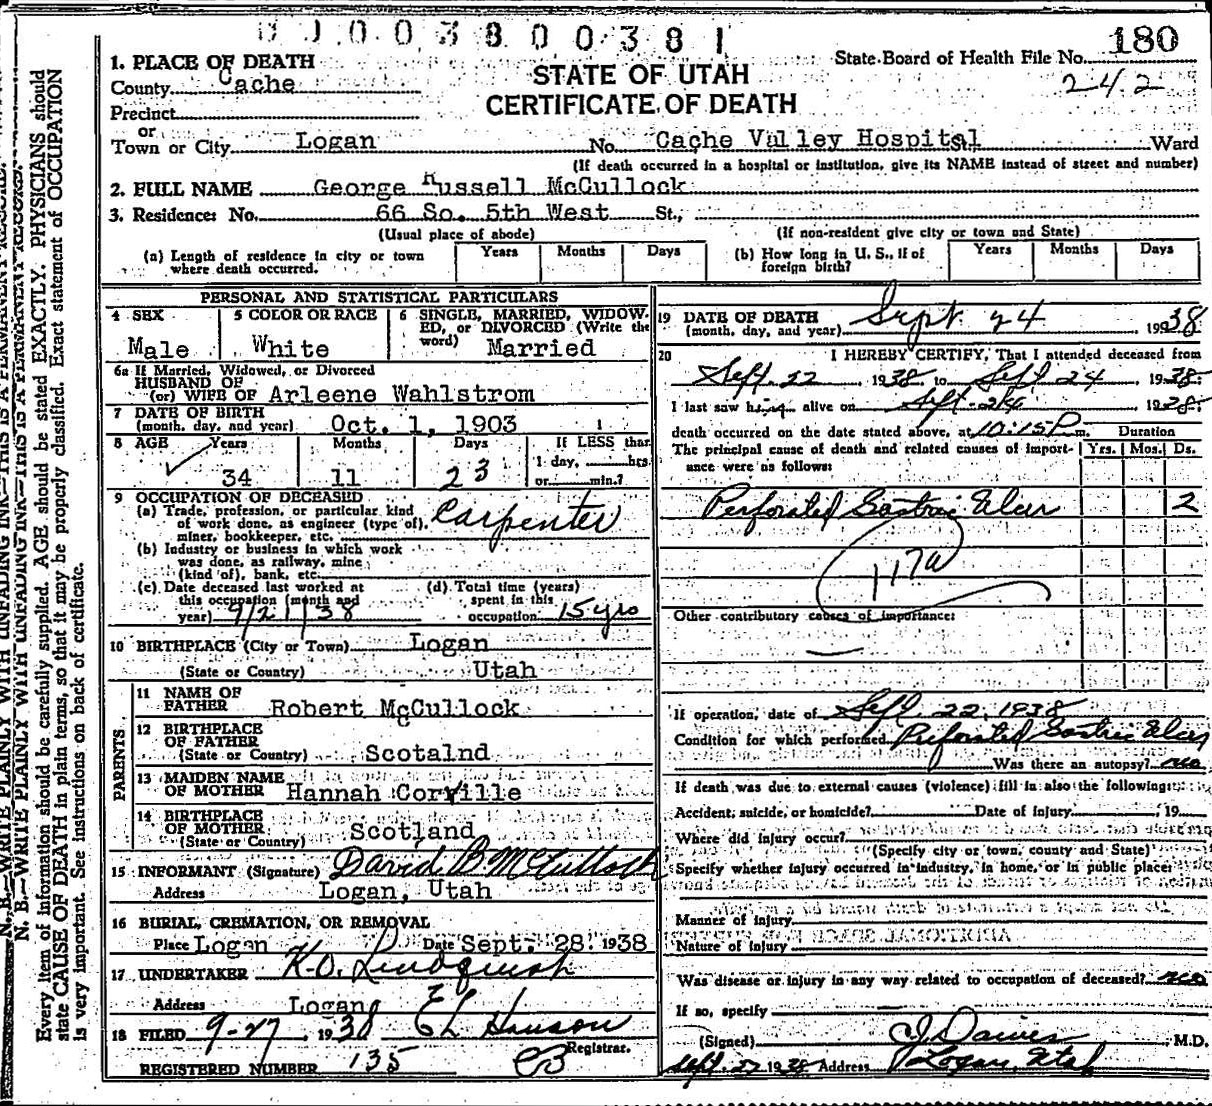 180
State Board of Health File No.
242
1. PLACE OF DEATH
County Cache
STATE OF UTAH
CERTIFICATE OF DEATH
Precinct
or
Town or City Logan No. Cache Valley Hospital St. Ward
(If death occurred in a hospital or institution, give its NAME instead of street and number)
2. FULL NAME George Russell McCullock
3. Residence: No. 66 So. 5th West St.,
(Usual place of abode) (If non-resident give city or town and State)
(a) Length of residence in city or town where death occurred. Years Months Days
(b) How long in U. S., if of foreign birth? Years Months Days
PERSONAL AND STATISTICAL PARTICULARS
4 SEX
Male
5 COLOR OR RACE
White
6 SINGLE, MARRIED, WIDOWED, or DIVORCED (Write the word)
Married
6a If Married, Widowed, or Divorced
HUSBAND OF
(or) WIFE OF Arleene Wahlstrom
7 DATE OF BIRTH
(month, day, and year) Oct. 1, 1903
8 AGE Years Months Days If LESS than
34 11 23 1 day, hrs.
or min.?
9 OCCUPATION OF DECEASED
(a) Trade, profession, or particular kind
of work done, as engineer (type of),
miner, bookkeeper, etc. Carpenter
(b) Industry or business in which work
was done, as railway, mine
(kind of), bank, etc.
(c) Date deceased last worked at
this occupation (month and
year) 9/21/38
(d) Total time (years)
spent in this
occupation 15 yrs
10 BIRTHPLACE (City or Town) Logan
(State or Country) Utah
PARENTS
11 NAME OF
FATHER Robert McCullock
12 BIRTHPLACE
OF FATHER
(State or Country) Scotalnd
13 MAIDEN NAME
OF MOTHER Hannah Corville
14 BIRTHPLACE
OF MOTHER
(State or Country) Scotland
15 INFORMANT (Signature) David B McCullock
Address Logan, Utah
16 BURIAL, CREMATION, OR REMOVAL
Place Logan Date Sept. 28. 1938
17 UNDERTAKER K-O. Lindquist
Address Logan
18 FILED 9-27, 1938 E L Hanson
Registrar.
REGISTERED NUMBER 135
19 DATE OF DEATH
(month, day, and year) Sept. 24 1938
20 I HEREBY CERTIFY, That I attended deceased from
Sept. 22, 1938, to Sept 24, 1938.
I last saw him alive on Sept. 24, 1938.
death occurred on the date stated above, at 10:15P m. Duration
The principal cause of death and related causes of importance were as follows: Yrs. Mos. Ds.
Perforated Gastric Ulcer 2
117a
Other contributory causes of importance:
If operation, date of Sept 22, 1938
Condition for which performed Perforated Gastric Ulcer
Was there an autopsy? no
If death was due to external causes (violence) fill in also the following:
Accident, suicide, or homicide? Date of injury , 19
Where did injury occur?
(Specify city or town, county and State)
Specify whether injury occurred in industry, in home, or in public place:
Manner of injury
Nature of injury
Was disease or injury in any way related to occupation of deceased? no
If so, specify
(Signed) , M.D.
Sept. 27 1938 Address Logan, Utah
N. B.—WRITE PLAINLY WITH UNFADING INK—THIS IS A PERMANENT RECORD.
Every item of information should be carefully supplied. AGE should be stated EXACTLY. PHYSICIANS should
state CAUSE OF DEATH in plain terms, so that it may be properly classified. Exact statement of OCCUPATION
is very important. See instructions on back of certificate.